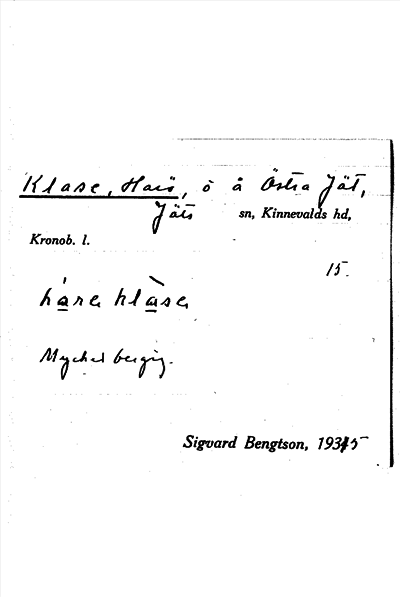 Klase, Hars, ö å Östra Jät,
Jäts sn, Kinnevalds hd,
Kronob. l.
15.
hárə klàsə
Mycket bergig.
Sigvard Bengtson, 1935